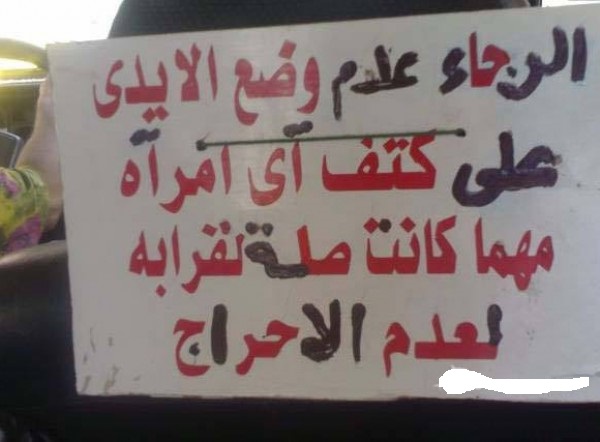 الرجاء علم وضع الايدى
على كتف أى امرأه
مهما كانت صلة لقرابه
لعدم الاحراج